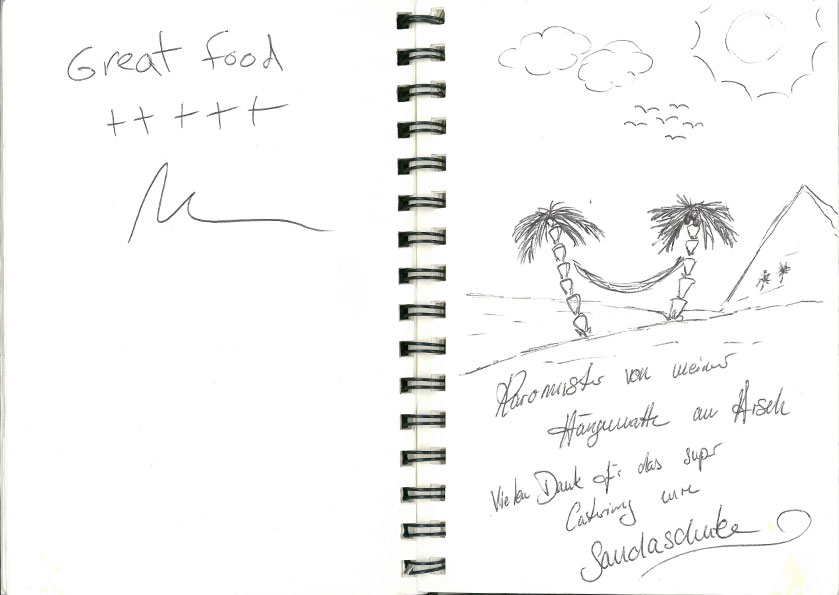 Great food
+++++
von meiner
Hängematte am Arsch
Vielen Dank für das super
Catering eure
Sandaschnke